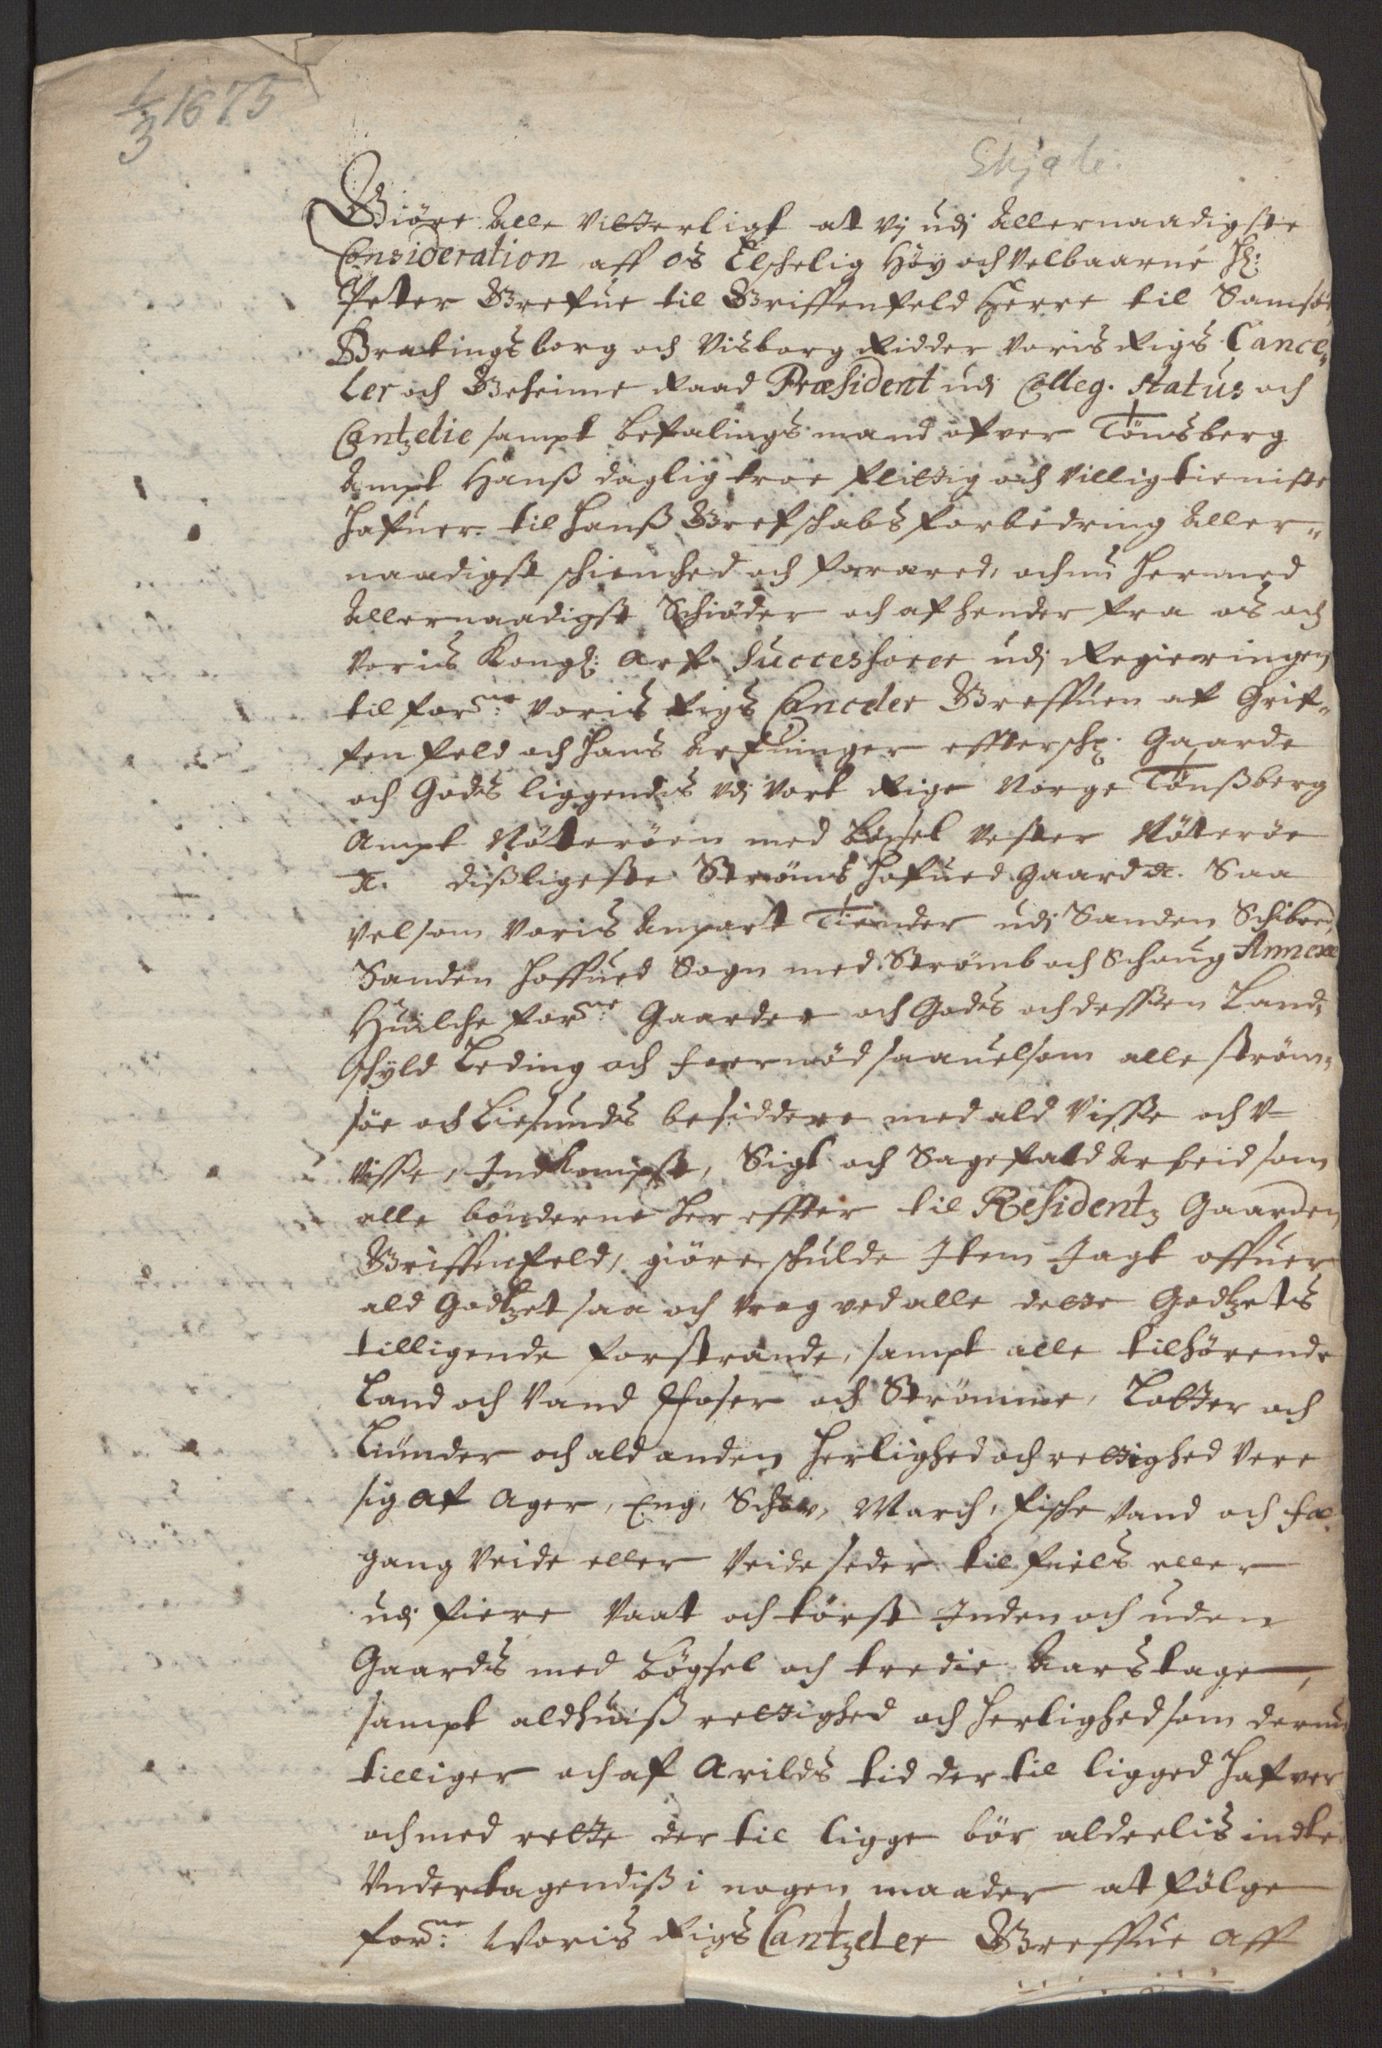 1/3 1675
Skjøde.
Giöre Alle Vitterligt at Vj udj Allernaadigste
Consideration aff os Elschelig Höy och Velbaarne H:
Peter Grefue til Griffenfeld Herre til Samsöe
Bratingsborg och Visborg Ridder Voris Rigs Cance„
ler och Geheime Raad Præsident udi Colleg. Status och
Cantzelie sampt befalings mand ofver Tönsberg
Ampt Hanß daglig troe flittig och villig tieniste
Hafuer til Hanß Grefschabs forbedring Aller„
naadigst schienched och forared, och nu hermed
Allernaadigst Schiöder och afhender fra os och
Voris Kongl: Arf Successorer udj Regieringen
til forne: Voris Rigs Canceler Greffuen af Grif„
fenfeld och Hans Arfuinger effterschr: Gaarde
och Gods liggendis Udj Vort Rige Norge Tönßberg
Ampt Nötteröen med bögsel Vester Nöteröe
&. dißligeste Ströms Hofued Gaard &. Saa
velsom Voris Anpart Tiender udj Sanden Schibred,
Sanden Hoffued Sogn med Strömb och Schoug Annexe
Huilche forne: Gaarder och Gods och dessen Land„
schyld Leding och foernöd saauelsom alle Ström„
söe och Liesunds besiddere med ald Visse och V
Visse, Indkompst, Sigt och Sagefald Arbeid som
alle bönderne her effter til Residentz Gaarden
Griffenfeld, giöre schulde Item Jagt offuer
ald Godtzet saa och Vrag ved alle dette Godtzets
tilligende forstrande, sampt alle tilhörende
Land och Vand Foser och Strömme, Lotter och
Lunder och ald anden Herlighed och rettighed Vere
sig af Ager, Eng, Schov, March, fische Vand och fæ
gang Veide eller Veide steder til fiels eller
udj fiere Vaat och tört Inden och uden
Gaards med bögsel och tredie Aarstage,
sampt aldhuiß rettighed och Herlighed som derund
tilliger och af Arilds tid der til ligged Hafver
och med rette der til ligge bör alderlis indtet
Vndertagendiß i nogen maader at fölge
forne: Woris Rigs Cantzeler Greffue Aff